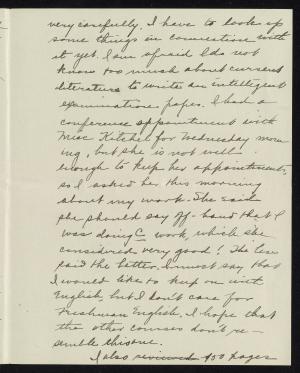 very carefully. I have to look up
some things in connection with
it yet. I am afraid I do not
know too much about current
literature to write an intelligent
examination paper. I had a
conference appointment with
Miss Kitchel for Wednesday morn
ing, but she is not well
enough to keep her appointments,
so I asked her this morning
about my work. She said
she should say off-hand that I
was doing C work, which she
considered very good! The less
said the better. I must say that
I would like to keep on with
English, but I don't care for
Freshman English. I hope that
the other courses don't re-
semble this one.
I also reviewed 450 pages